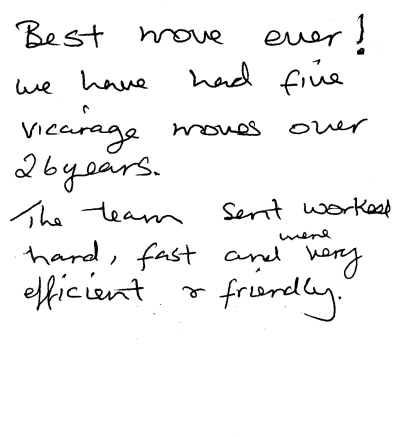 Best move ever!
we have had five
vicarage moves over
26 years.
The team sent worked
hard, fast and were very
efficient & friendly.